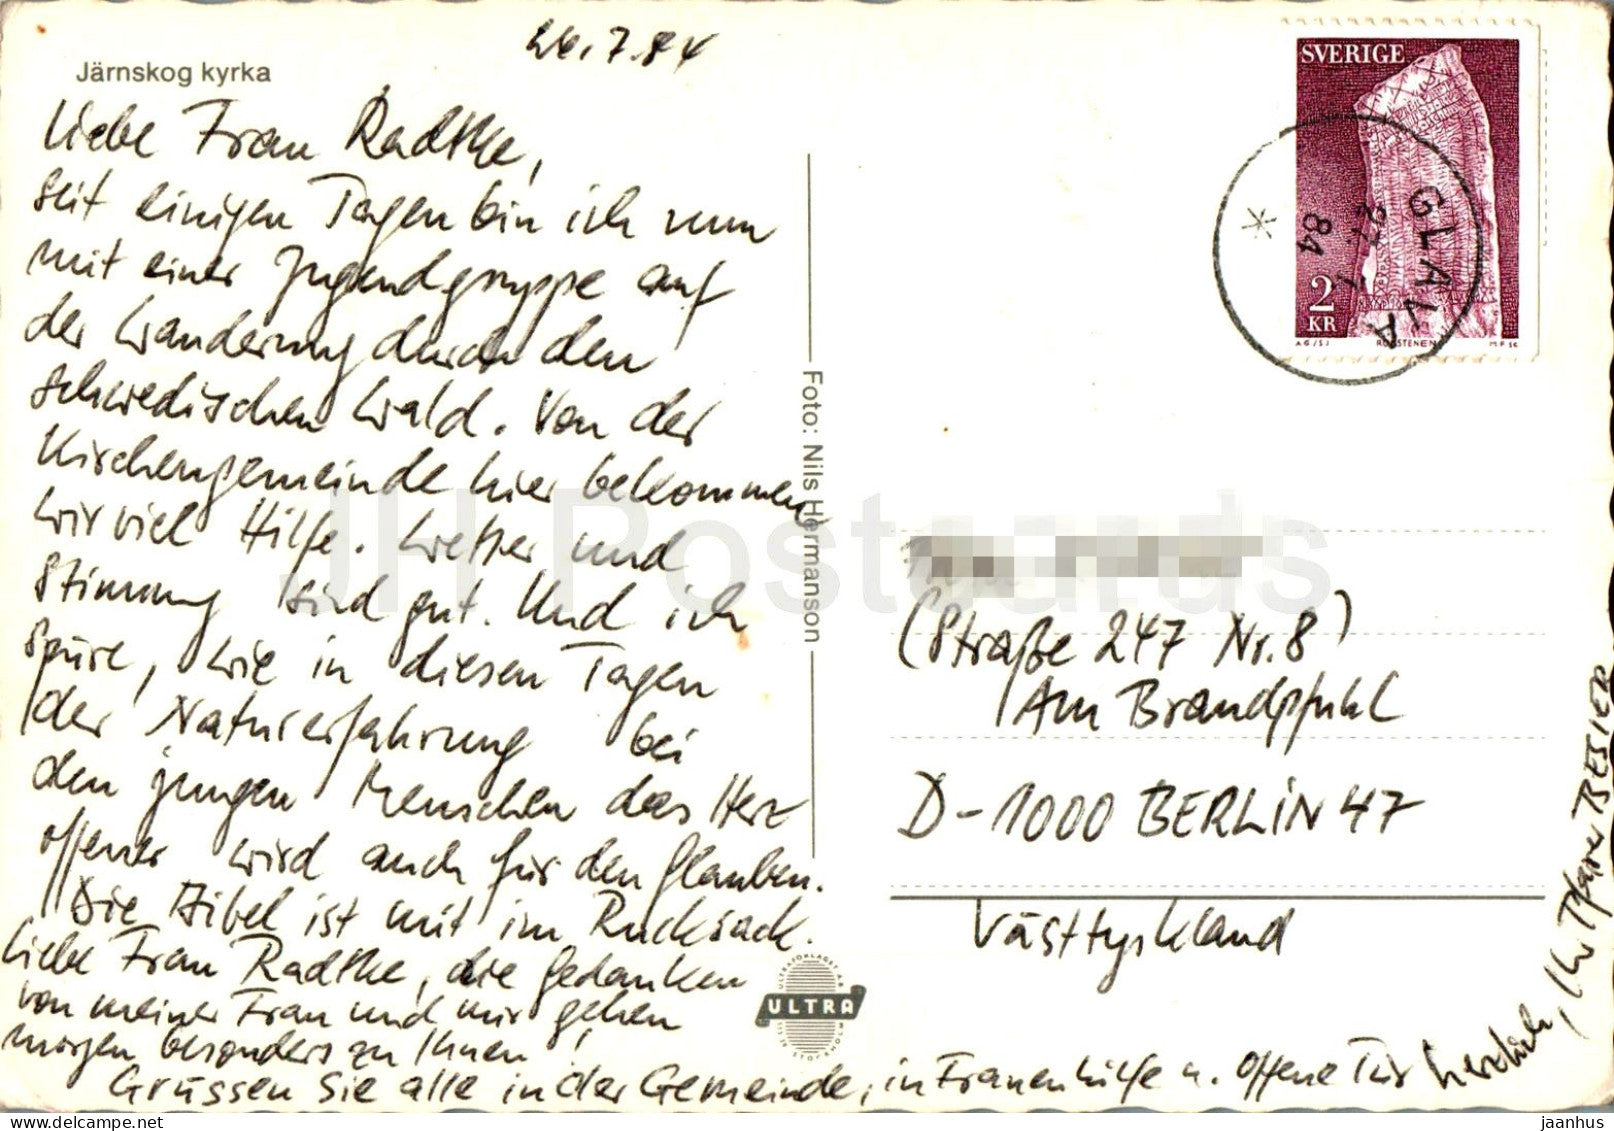 Järnskog kyrka
26.7.84
Liebe Frau Radtke,
seit einigen Tagen bin ich nun
mit einer Jugendgruppe auf
der Wanderung durch den
schwedischen Wald. Von der
Kirchengemeinde hier bekommen
wir viel Hilfe. Wetter und
Stimmung sind gut. Und ich
spüre, wie in diesen Tagen
der Naturerfahrung bei
den jungen Menschen das Herz
offener wird auch für den Glauben.
Die Bibel ist mit im Rucksack.
Liebe Frau Radtke, die Gedanken
von meiner Frau und mir gehen
morgen besonders zu Ihnen!
Grüssen Sie alle in der Gemeinde, in Frauenhilfe u. Offene Tür
herzlich, Ihr Pfarrer BESIER
Foto: Nils Hermanson
ULTRA
SVERIGE
2
KR
AG/SJ RÖKSTENEN
GLAVA
27 7
84
(Straße 247 Nr. 8)
Am Brandpfuhl
D-1000 BERLIN 47
Västtyskland
JH Postcards
jaanhus @ delcampe.net